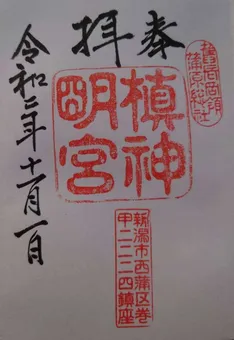 奉拝
槙神
明宮
新潟市西蒲区巻
甲二二二四鎮座
令和二年十一月一日